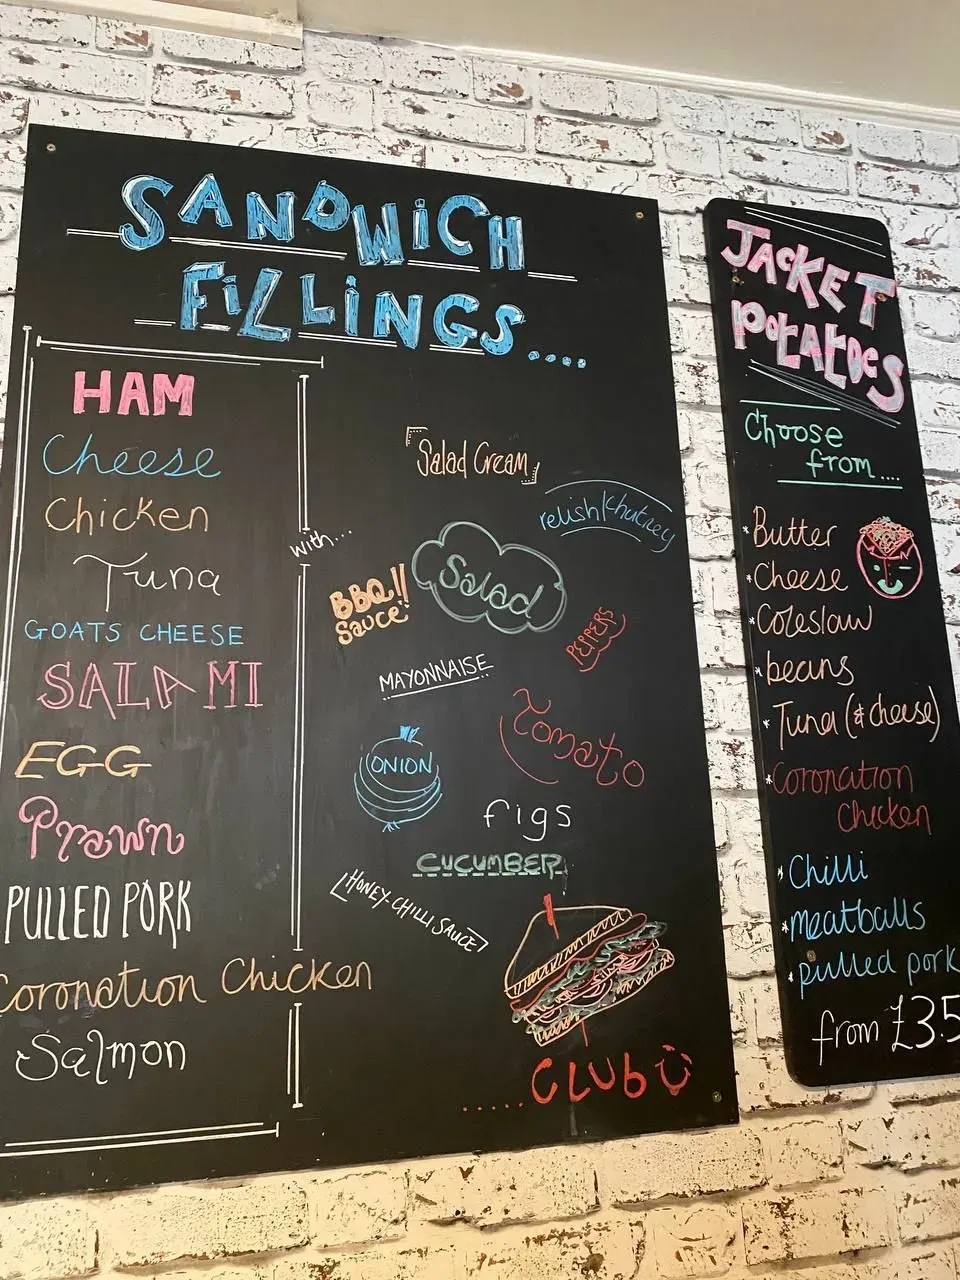 SANDWICH
FILLINGS....
HAM
Cheese
Chicken
Tuna
GOATS CHEESE
SALAMI
EGG
Prawn
PULLED PORK
Coronation Chicken
Salmon
with...
Salad Cream
relish/chutney
Salad
BBQ!!
Sauce
PEPPERS
MAYONNAISE
Tomato
ONION
figs
CUCUMBER
HONEY-CHILLI SAUCE
.....CLUB
JACKET
POTATOES
Choose
from....
*Butter
*Cheese
*Coleslaw
*beans
*Tuna (& cheese)
*Coronation
Chicken
*Chilli
*meatballs
*pulled pork
from £3.5